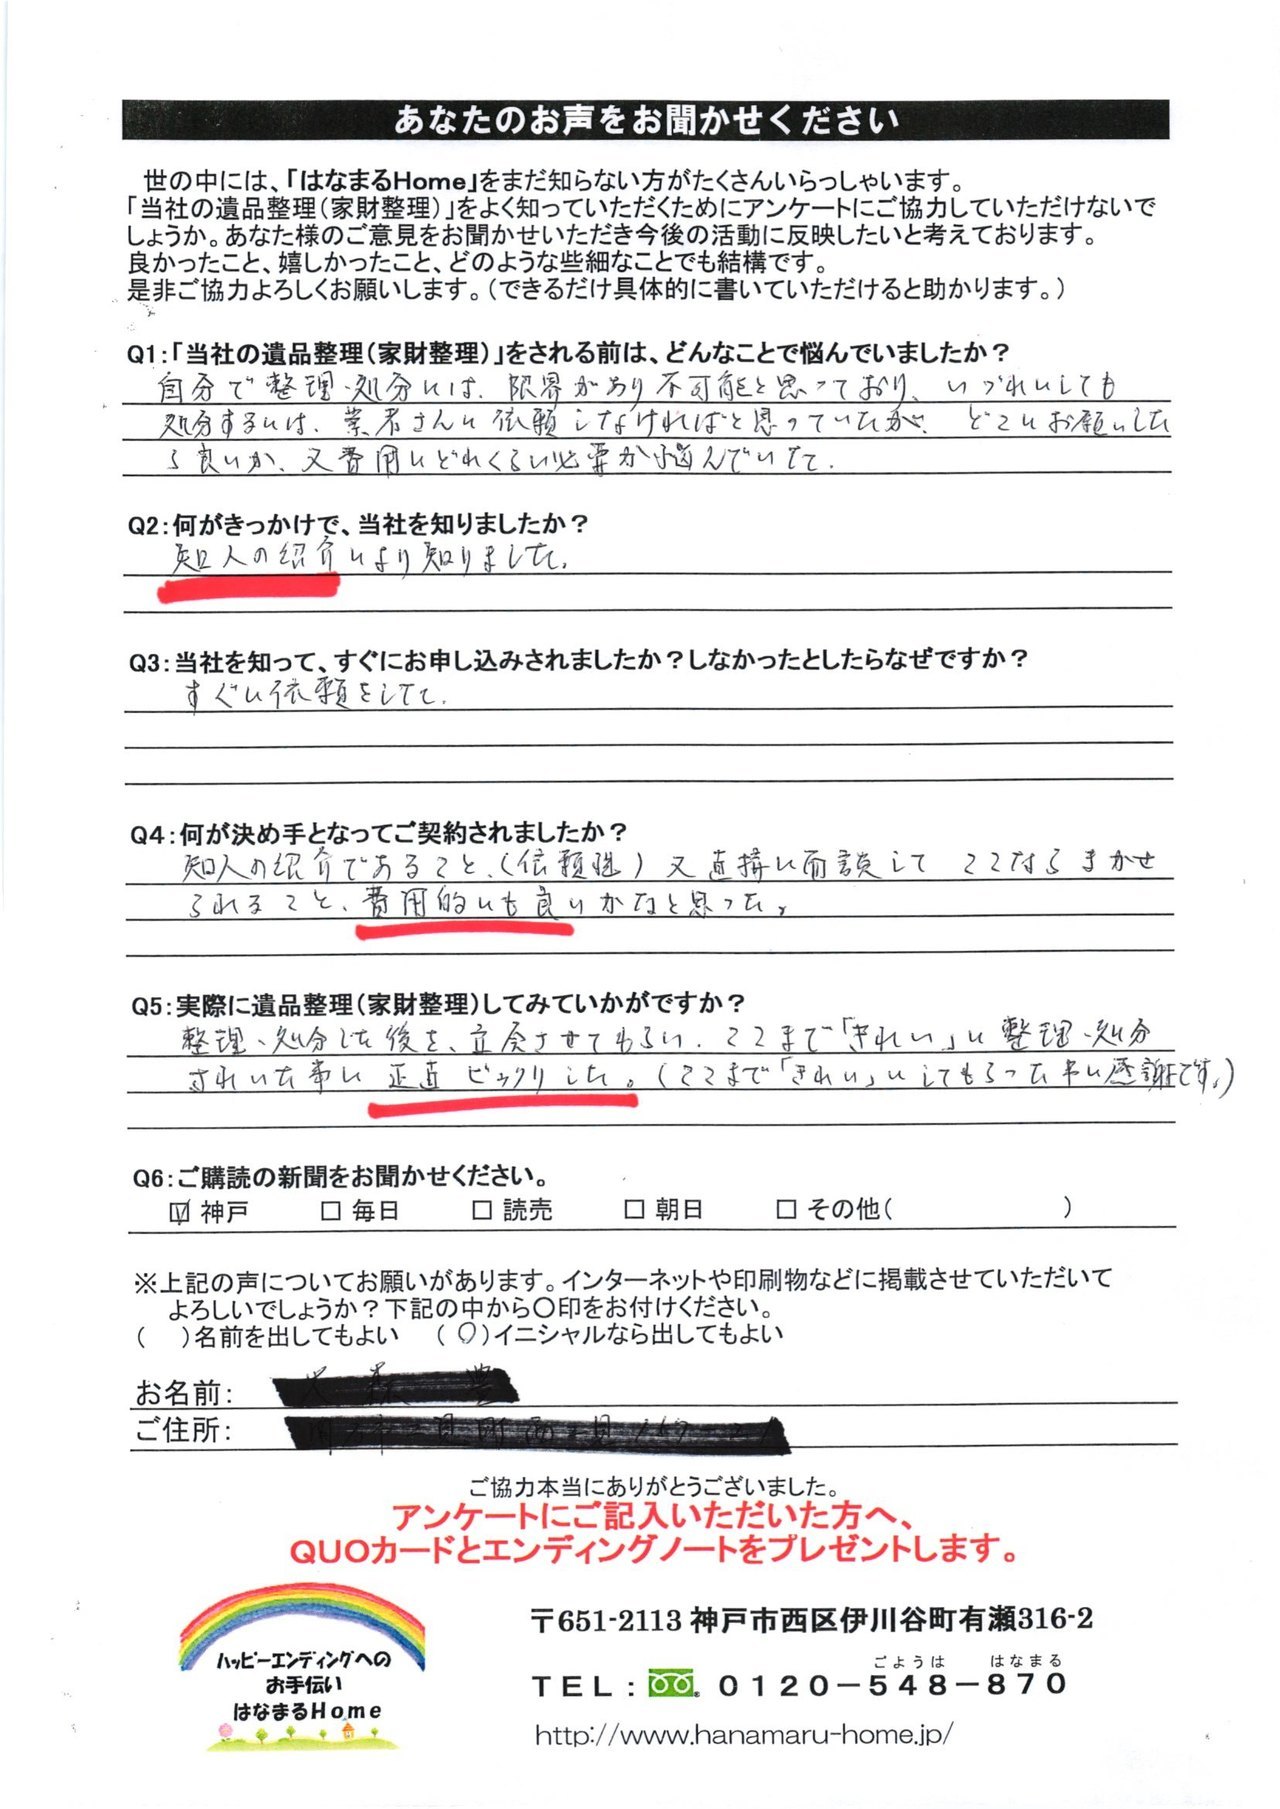 あなたのお声をお聞かせください
世の中には、「はなまるHome」をまだ知らない方がたくさんいらっしゃいます。
「当社の遺品整理(家財整理)」をよく知っていただくためにアンケートにご協力していただけないで
しょうか。あなた様のご意見をお聞かせいただき今後の活動に反映したいと考えております。
良かったこと、嬉しかったこと、どのような些細なことでも結構です。
是非ご協力よろしくお願いします。(できるだけ具体的に書いていただけると助かります。)
Q1:「当社の遺品整理(家財整理)」をされる前は、どんなことで悩んでいましたか?
自分で整理・処分には、限界があり不可能と思っており、いづれにしても
処分するには、業者さんに依頼しなければと思っていたが、どこにお願いした
ら良いか、又費用はどれくらい必要か悩んでいた。
Q2:何がきっかけで、当社を知りましたか?
知人の紹介により知りました。
Q3:当社を知って、すぐにお申し込みされましたか?しなかったとしたらなぜですか?
すぐに依頼をした。
Q4:何が決め手となってご契約されましたか?
知人の紹介であること、(依頼後)又直接に面談してここならまかせ
られること、費用的にも良いかなと思った。
Q5:実際に遺品整理(家財整理)してみていかがですか?
整理・処分した後を、立会させてもらい、ここまで「きれい」に整理・処分
されいた事に正直ビックリした。(ここまで「きれい」にしてもらった事に感謝です。)
Q6:ご購読の新聞をお聞かせください。
☑ 神戸 □ 毎日 □ 読売 □ 朝日 □ その他( )
※上記の声についてお願いがあります。インターネットや印刷物などに掲載させていただいて
よろしいでしょうか?下記の中から〇印をお付けください。
( )名前を出してもよい (〇)イニシャルなら出してもよい
お名前:
ご住所:
ご協力本当にありがとうございました。
アンケートにご記入いただいた方へ、
QUOカードとエンディングノートをプレゼントします。
ハッピーエンディングへの
お手伝い
はなまるHome
〒651-2113 神戸市西区伊川谷町有瀬316-2
ごようは はなまる
TEL: 0120-548-870
http://www.hanamaru-home.jp/